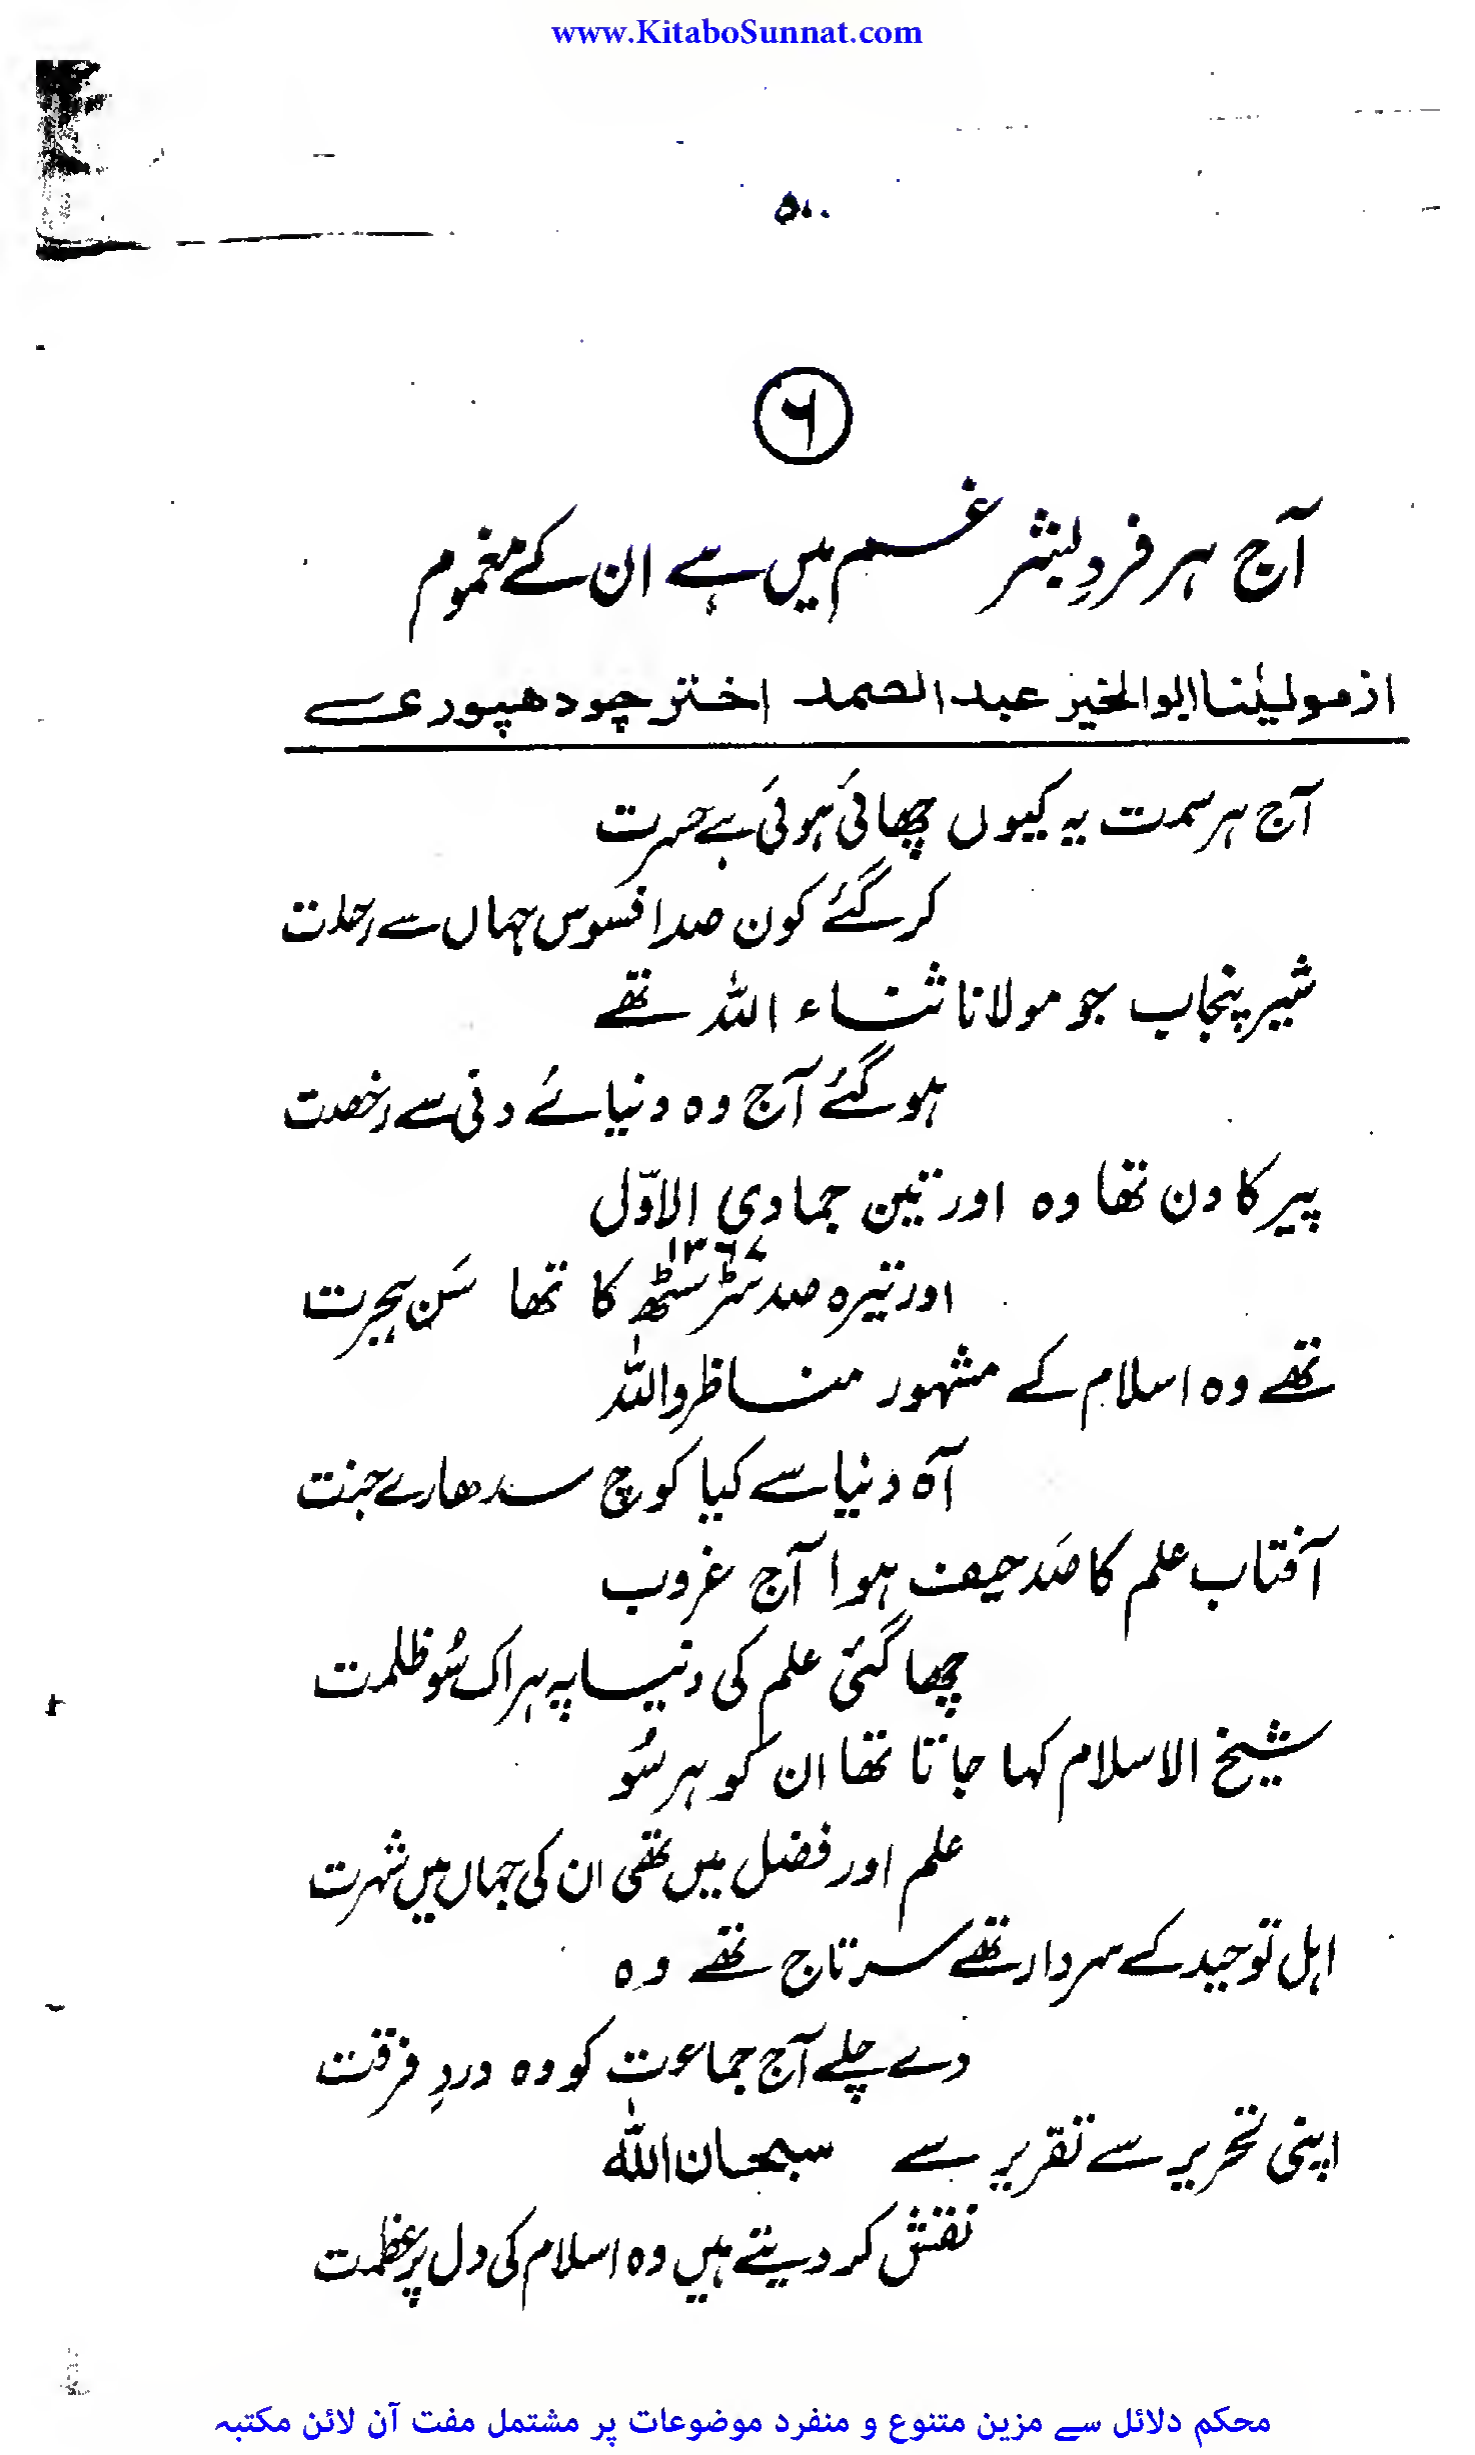 www.KitaboSunnat.com
۵۰۰
۶
آج ہر فردِ بشر غم میں ہے ان کے مغموم
از مولیٰنا ابوالخیر عبدالصمد اختر چودھپوری
آج ہر سمت یہ کیوں چھائی ہوئی ہے حسرت
کر گئے کون صد افسوس جہاں سے رحلت
شیر پنجاب جو مولانا ثناء اللہ تھے
ہو گئے آج وہ دنیائے دنی سے رخصت
پیر کا دن تھا وہ اور تین جمادی الاوّل
۱۳۶۷
اور تیرہ صد سٹرسٹھ کا تھا سَن ہجرت
تھے وہ اسلام کے مشہور مناظر واللہ
آہ دنیا سے کیا کوچ سدھارے جنت
آفتاب علم کا صَد حیف ہوا آج غروب
چھا گئی علم کی دنیا پہ ہر اک سُو ظلمت
شیخ الاسلام کہا جاتا تھا ان کو ہر سُو
علم اور فضل میں تھی ان کی جہاں میں شہرت
اہل توحید کے سردار تھے سرتاج تھے وہ
دے چلے آج جماعت کو وہ دردِ فرقت
اپنی تحریر سے تقریر سے سبحان اللہ
نقش کر دیتے ہیں وہ اسلام کی دل پر عظمت
محکم دلائل سے مزین متنوع و منفرد موضوعات پر مشتمل مفت آن لائن مکتبہ